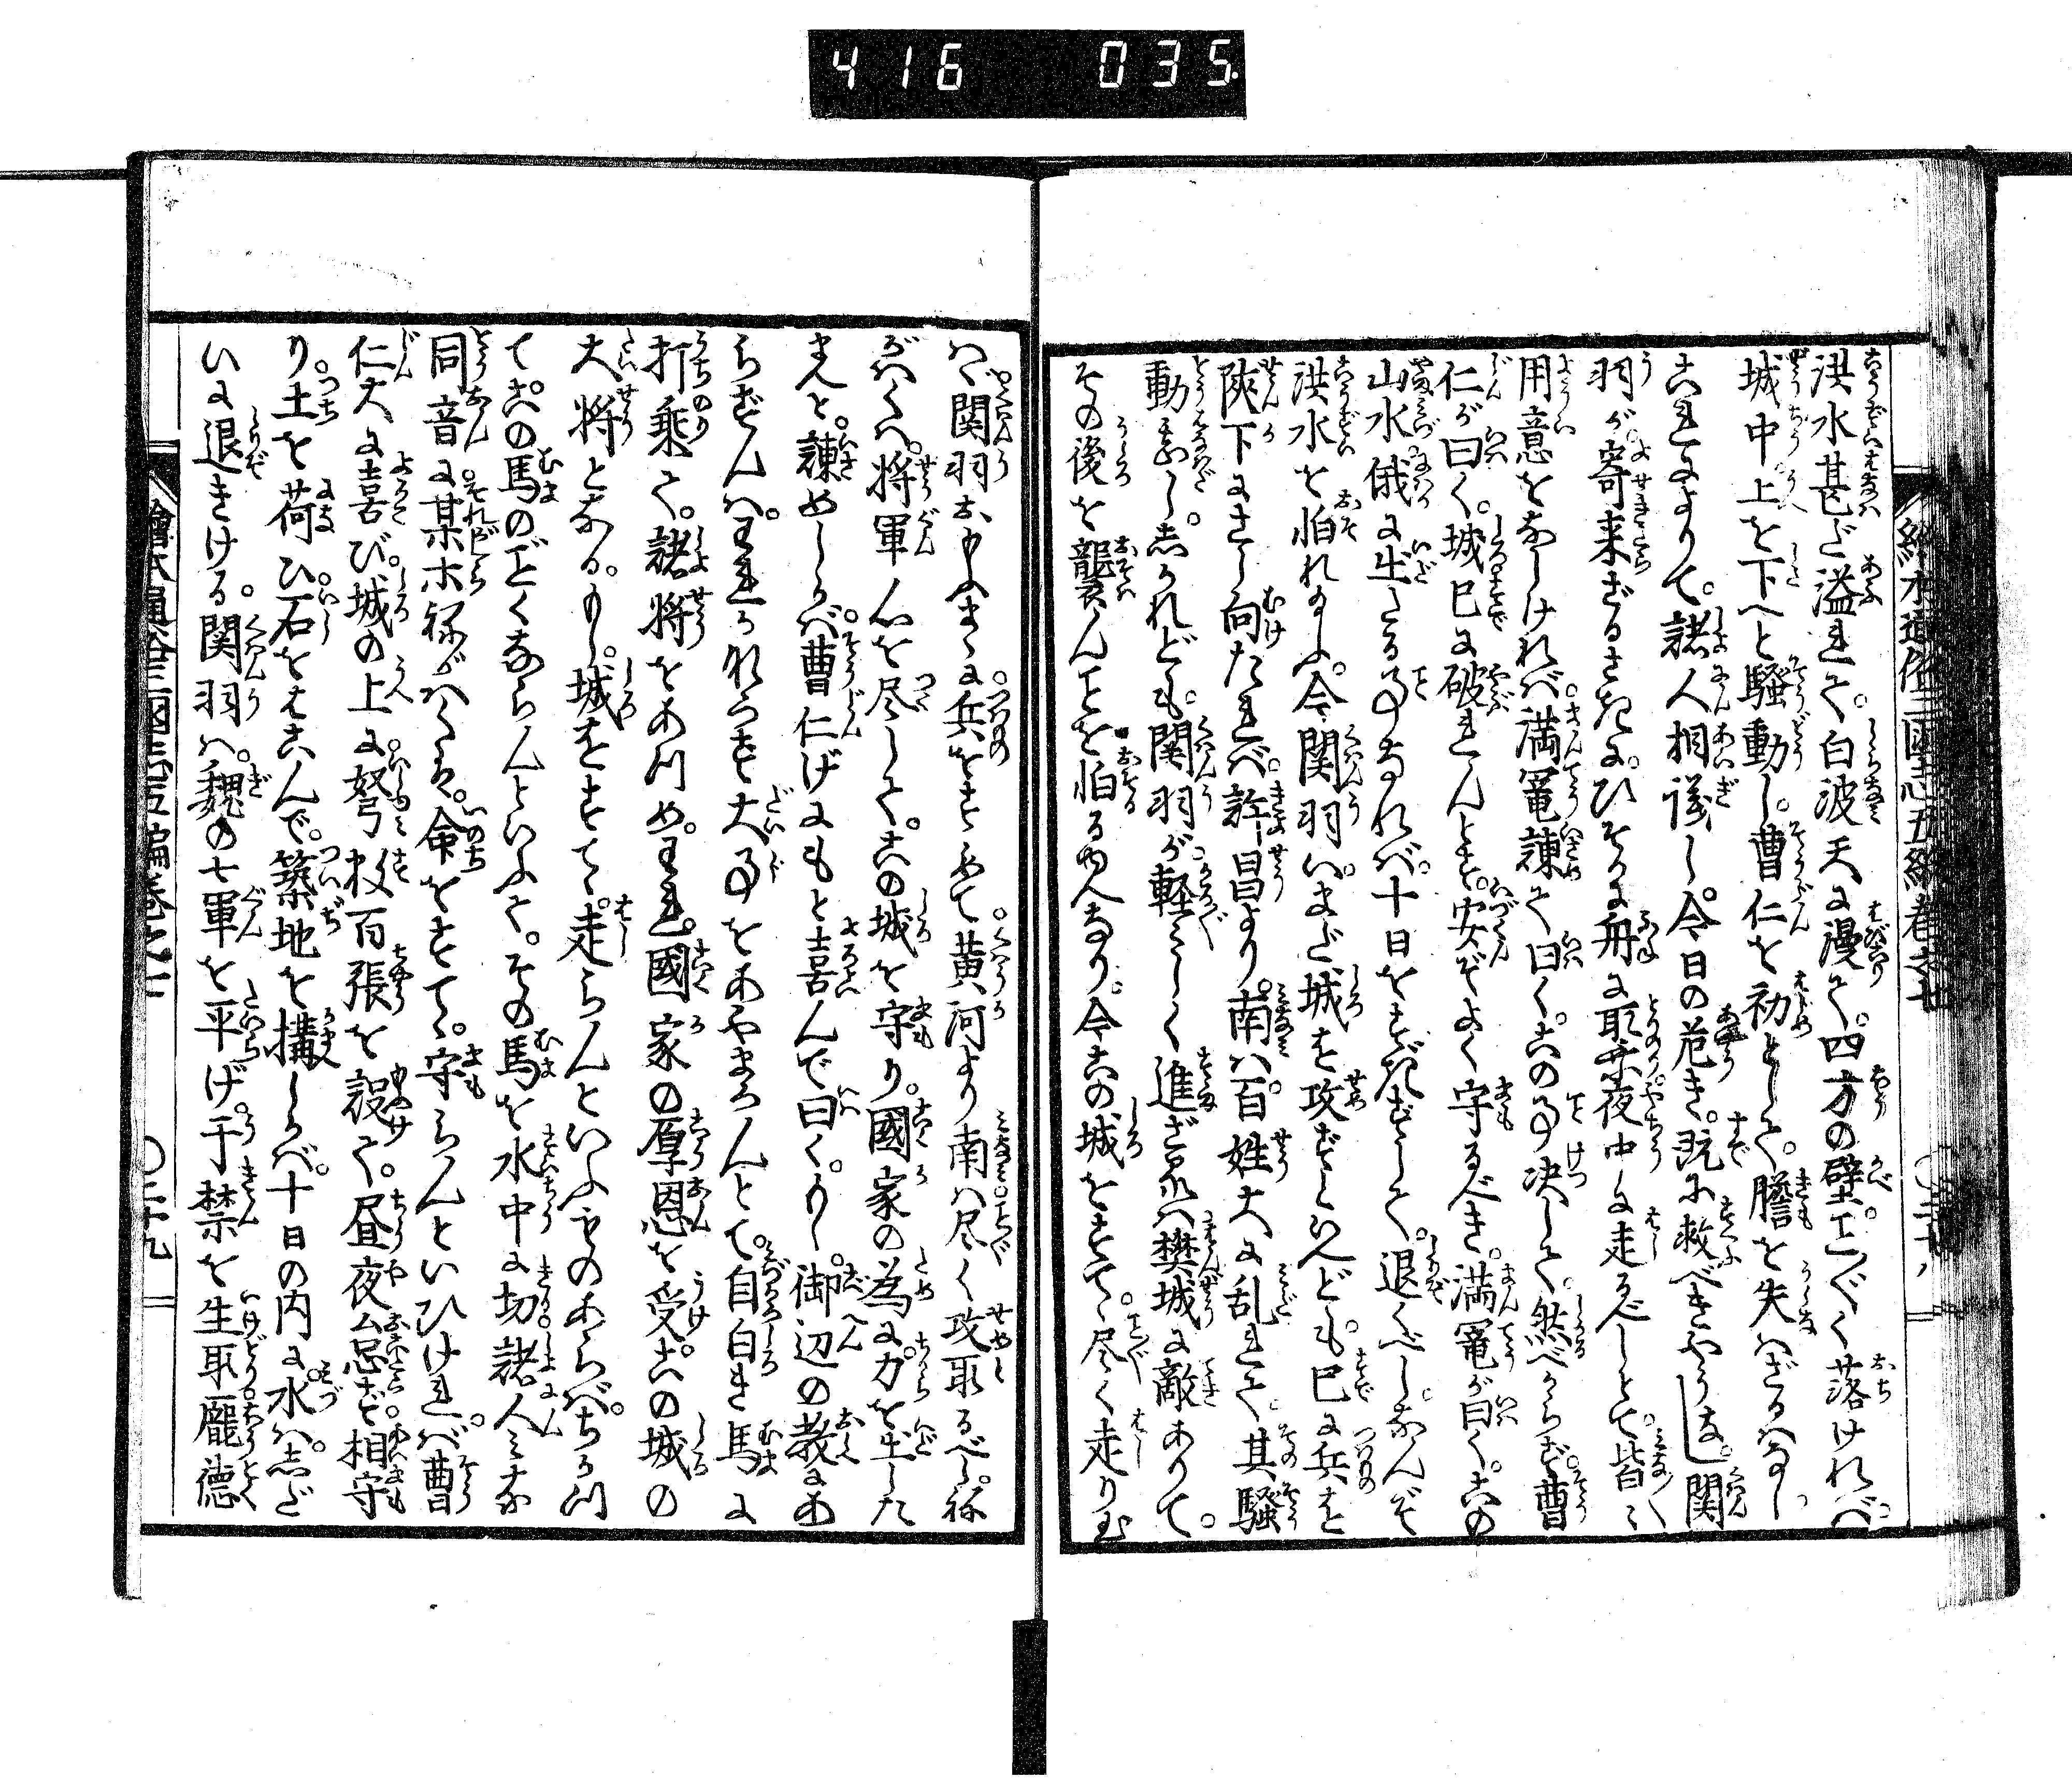 416 035
洪水甚だ溢れて。白波天に漫て。四方の壁こと〴〵く落ければ。
城中上を下へと騒動し。曹仁を初として。膽を失はざるはなし。
これによりて。諸人相議し。今日の危き。既に救べきやうなし。関
羽が寄来ざるさきに。ひそかに舟に取乗夜中に走るべしとて。皆〻
用意をなしければ。満寵諫て曰く。この事决して。然べからず。曹
仁が曰く。城已に破れんとす。安ぞよく守るべき。満寵が曰く。この
山水俄に生たる事なれば。十日をすぎずして。退くべし。なんぞ
洪水を怕れ玉ふ。今関羽いまだ城を攻ずといへども。已に兵を
陝下にさし向たれば。許昌より。南は百姓大に乱れて。其騒
動甚し。しかれども。関羽が軽〻しく進ざるは。樊城に敵ありて。
その後を襲んことを怕るゆへなり。今この城をすてゝ。尽く走り玉
はゞ。関羽おもふまゝに。兵をすゝめて。黄河より南は。尽く攻取るべし。ね
がはくは。将軍心を尽して。この城を守り。國家の為に力を出した
まへと。諫めしかば。曹仁げにもと喜んで曰く。もし。御辺の教にあ
らずんば。われかならず大事をあやまらんとて。自白き馬に
打乗て。諸将をあつめ。われ。國家の厚恩を受。この城の
大将となる。もし。城をすてゝ。走らんといふものあらば。ちかつ
てこの馬のごとくならんといふて。その馬を水中に切。諸人みな
同音に某ホねがはくは。命をすてゝ。守らんといひければ。曹
仁大に喜び。城の上に。弩数百張を設て。昼夜怠ず。相守
り。土を荷ひ。石をはこんで。築地を構しかば。十日の内に。水はしだ
いに退きける。関羽は。魏の七軍を平げ。于禁を生取。龐徳
繪本通俗三國志五編巻之七
〇二十九